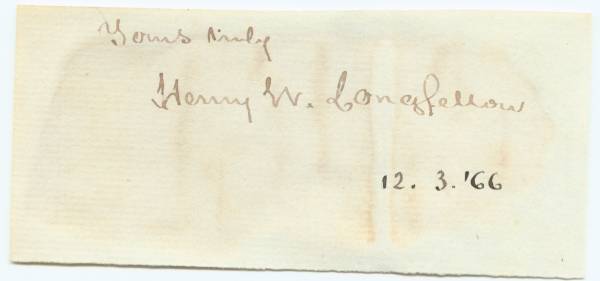 Yours truly
Henry W. Longfellow
12. 3. '66